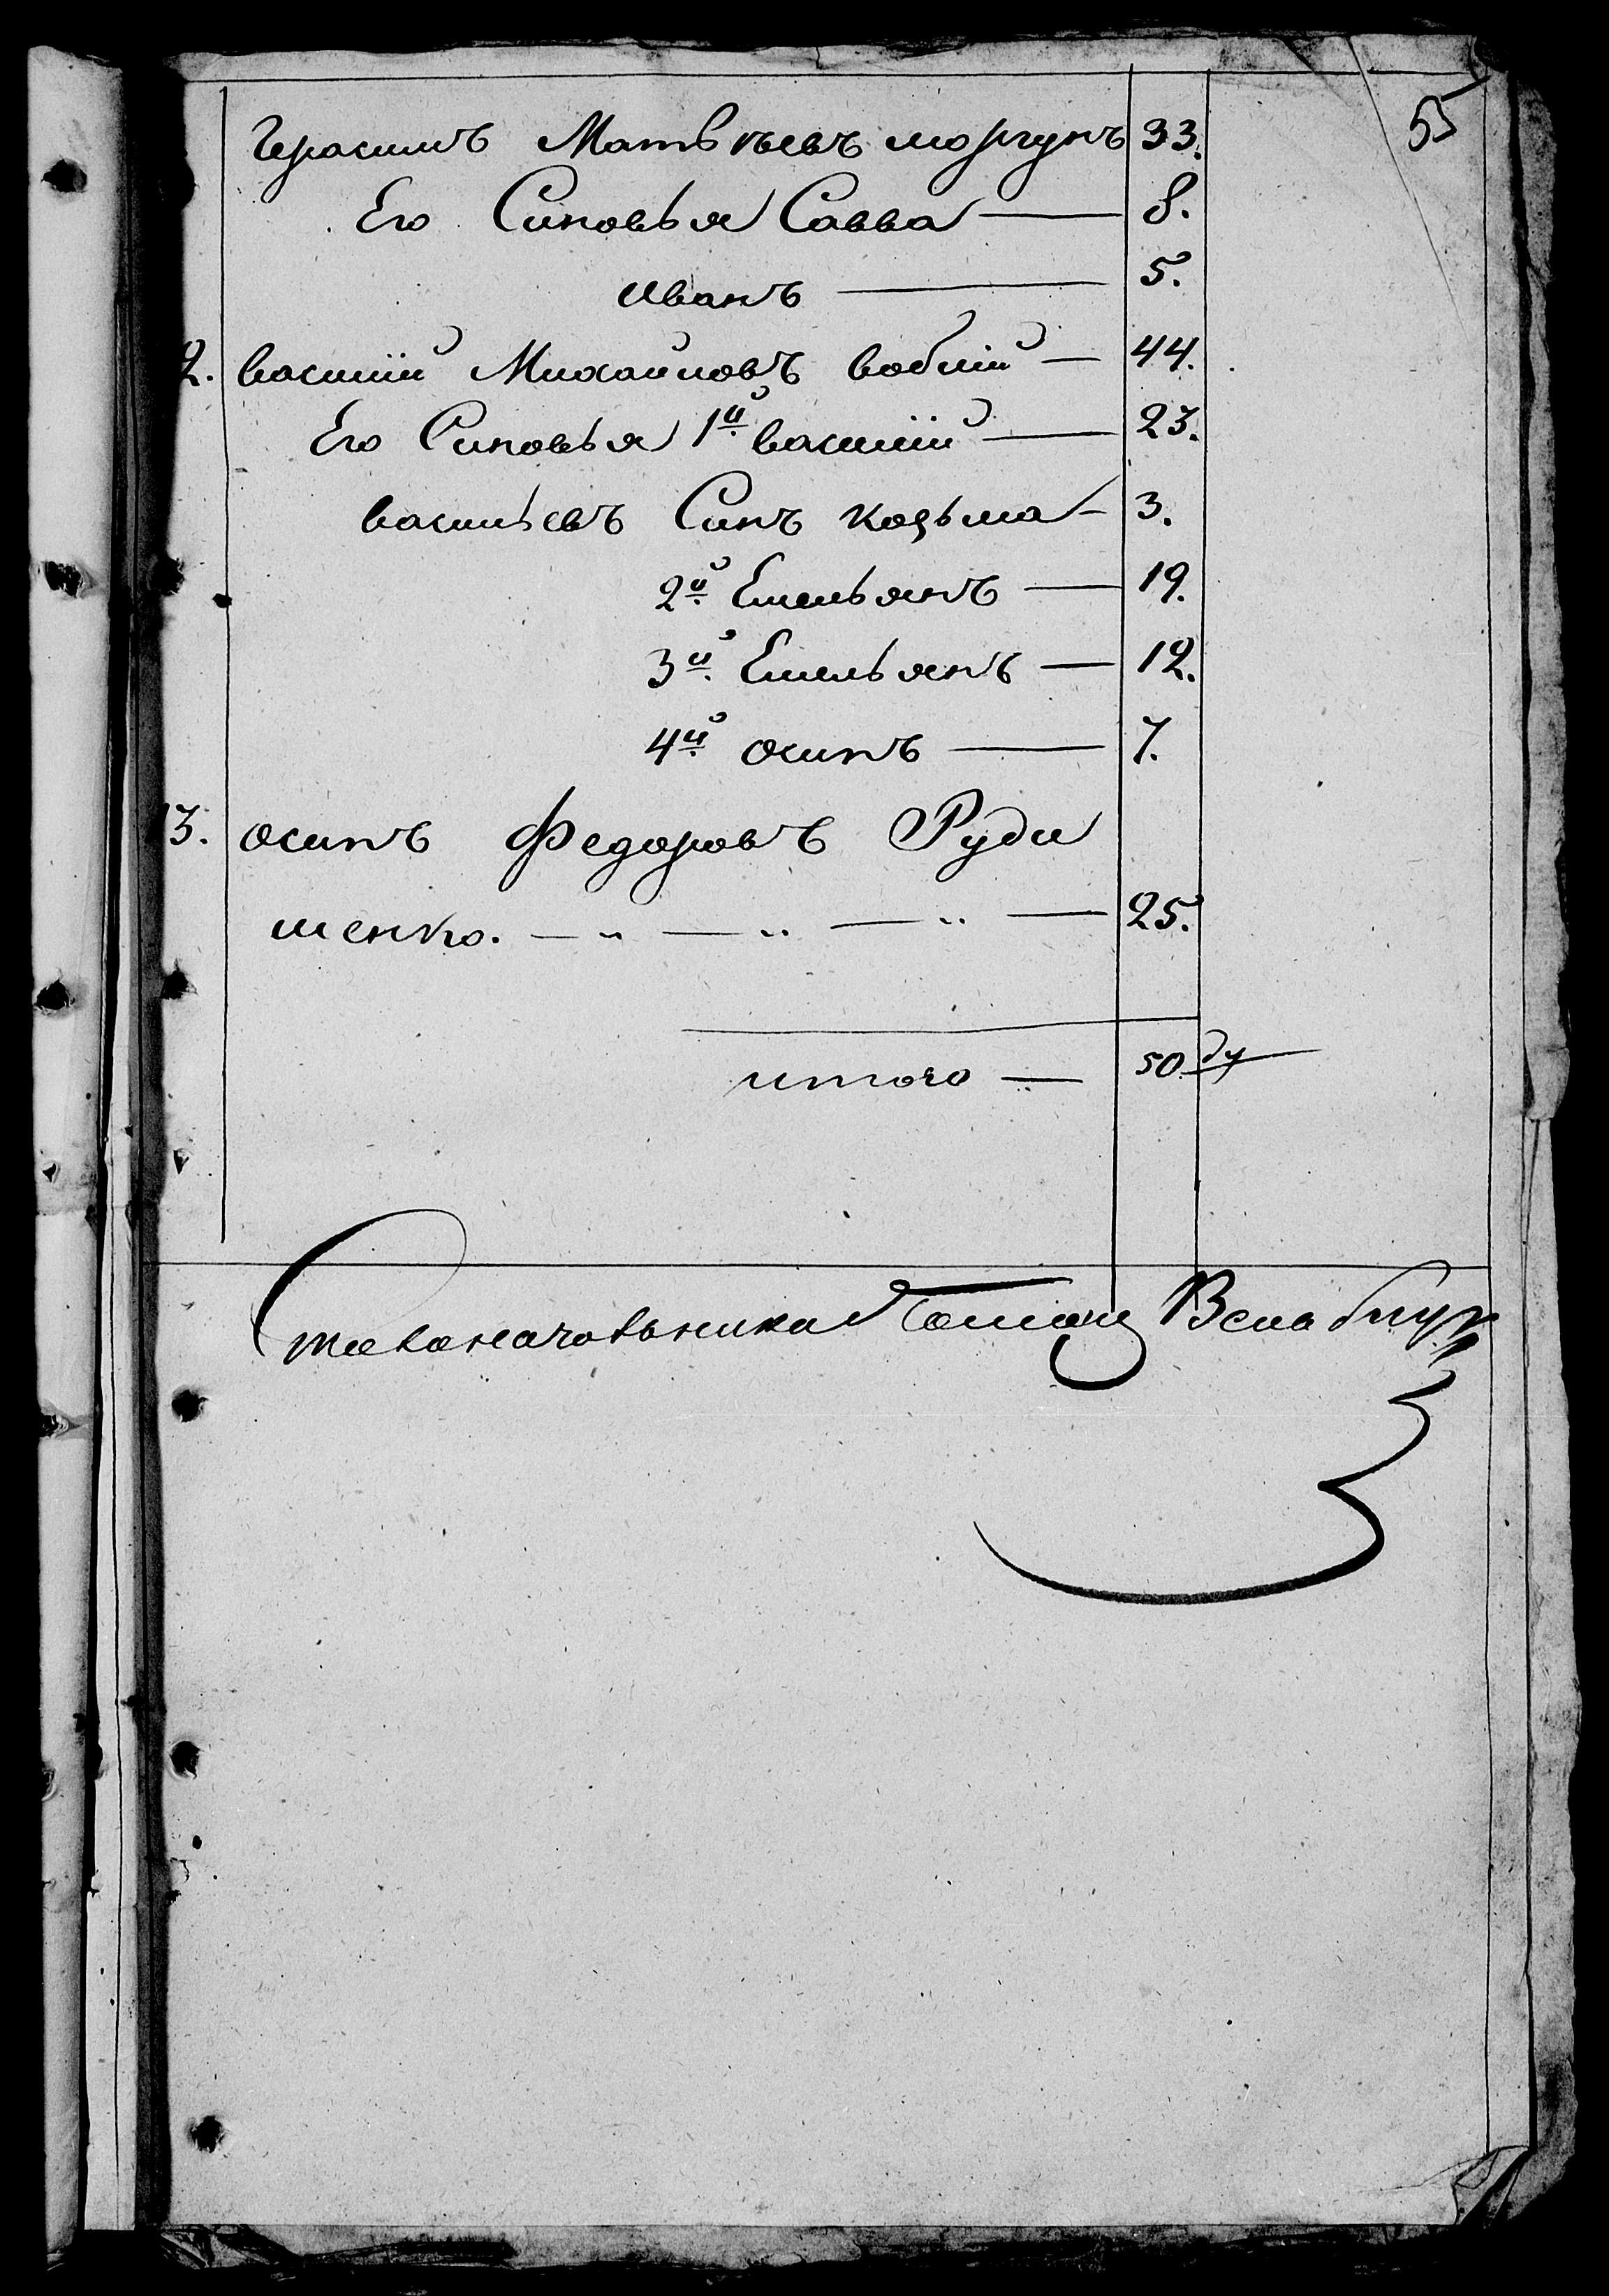 55
Герасимъ Матвѣевъ моргунъ 33.
Его Синовья Савва — 8.
иванъ — 5.
2. василий Михайловъ вовкий — 44.
Его Синовья 1й василий — 23.
васильевъ Синъ козьма — 3.
2й Емельянъ — 19.
3й Емельянъ — 12.
4й осипъ — 7.
13. осипъ Федоровъ Руди
менко. — „ — „ — „ — 25.
итого — 50 ду